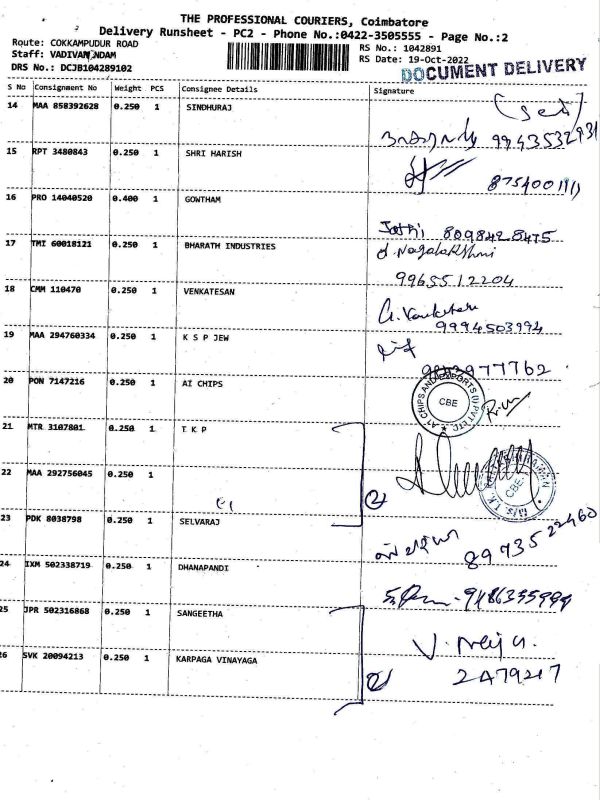 THE PROFESSIONAL COURIERS, Coimbatore
Delivery Runsheet - PC2 - Phone No.:0422-3505555 - Page No.:2
Route: COKKAMPUDUR ROAD
RS No.: 1042891
Staff: VADIVANANDAM
RS Date: 19-Oct-2022
DRS No.: DCJB104289102
DOCUMENT DELIVERY
S No Consignment No Weight PCS Consignee Details Signature
14 MAA 858392628 0.250 1 SINDHURAJ
9943532931
15 RPT 3480843 0.250 1 SHRI HARISH
16 PRO 14040520 0.400 1 GOWTHAM
Jothi 8098428475
17 TMI 60018121 0.250 1 BHARATH INDUSTRIES
d. Nagalakshmi
9965512204
18 CMM 110470 0.250 1 VENKATESAN
9994503994
19 MAA 294760334 0.250 1 K S P JEW
20 PON 7147216 0.250 1 AI CHIPS
CBE
21 MTR 3107801 0.250 1 T K P
22 MAA 292756045 0.250 1
2
CBE
23 PDK 8038798 0.250 1 SELVARAJ
8973522460
24 IXM 502338719 0.250 1 DHANAPANDI
25 JPR 502316868 0.250 1 SANGEETHA
26 SVK 20094213 0.250 1 KARPAGA VINAYAGA
2